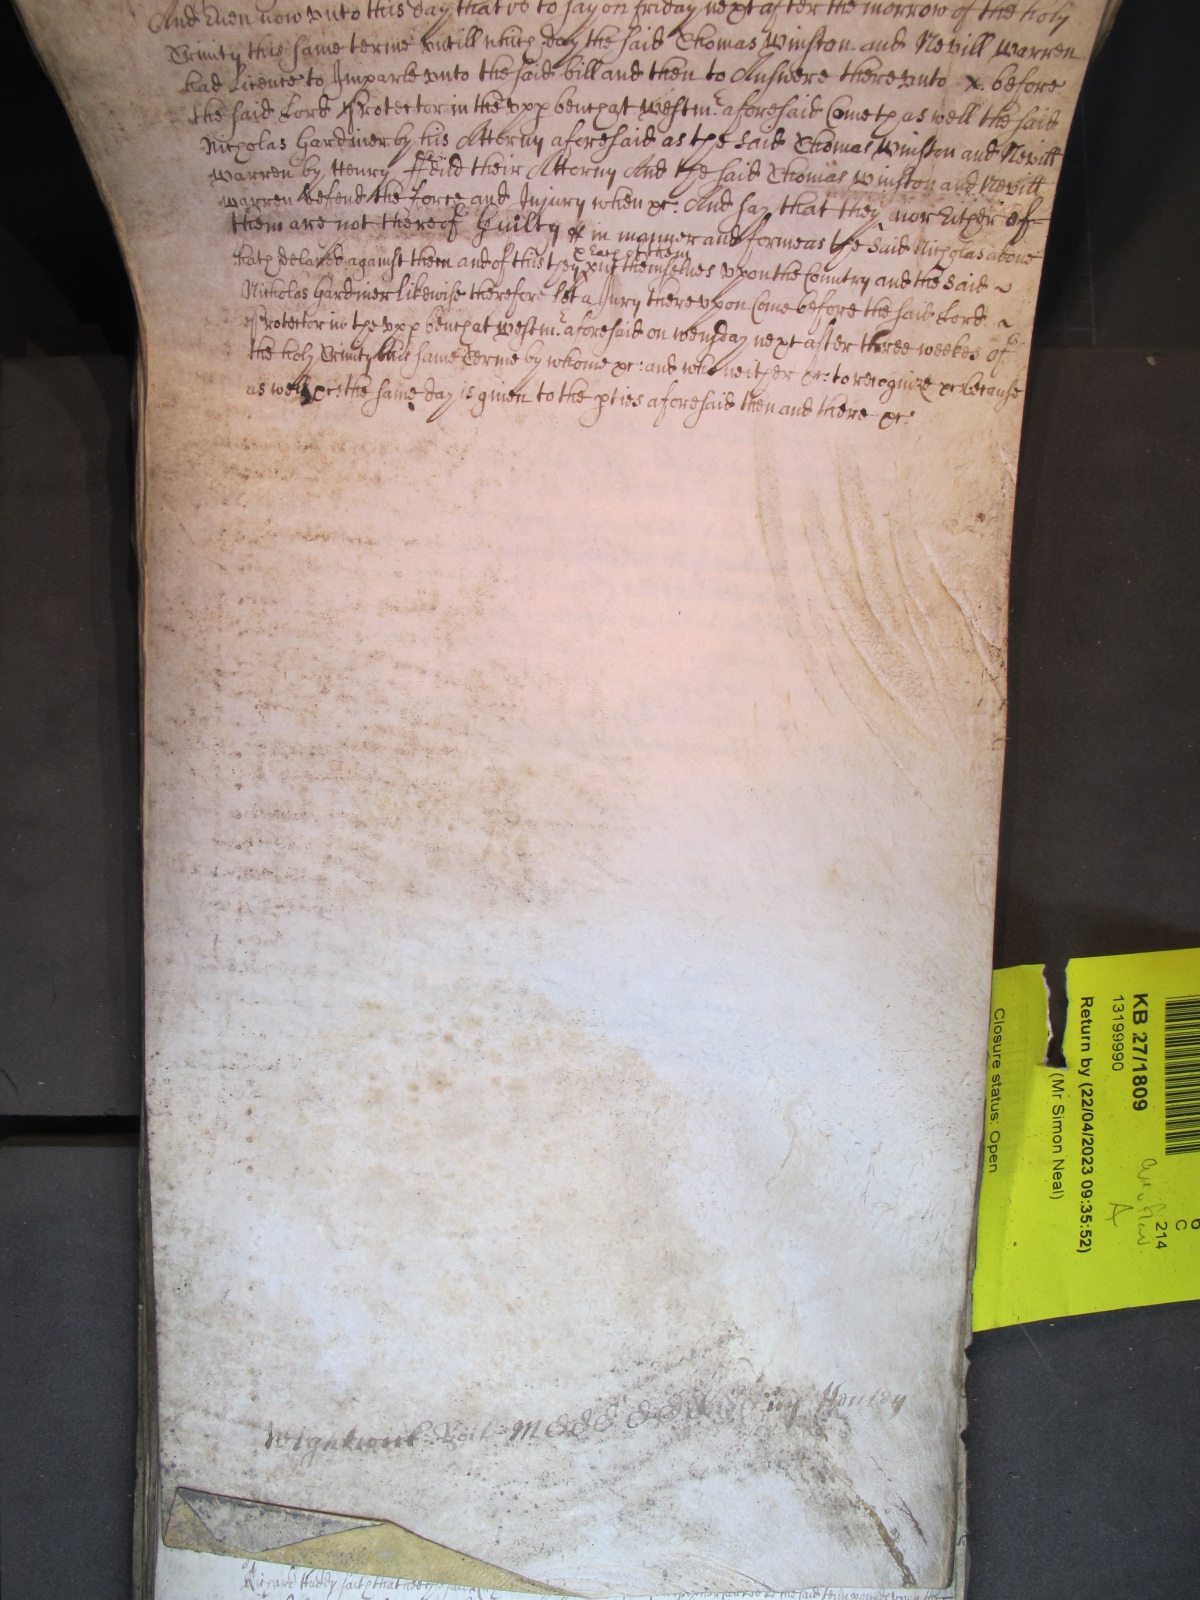 And Even now unto this day that is to say on friday next after the morrow of the holy
Trinity this same terme untill which day the said Thomas Winston and Nevill Warren
had Licence to Imparle unto the said bill and then to Answere thereunto &c. before
the said Lord Protector in the upp bench at Westmr. aforesaid Cometh as well the said
Nicholas Gardiner by his Attorny aforesaid as the said Thomas Winston and Nevill
Warren by Henry ffeild their Attorny And the said Thomas Winston and Nevill
Warren defend the force and Injury when &c: And say that they nor Either of
them are not thereof Guilty in manner and forme as the said Nicholas above
hath declared against them and of this they put themselves upon the Country and the said ~
& Each of them
Nicholas Gardiner likewise therefore let a Jury thereupon Come before the said Lord ~
Protector in the upp bench at Westmr. aforesaid on wensday next after three weekes of
the holy Trinity this same Terme by whome &c: and who neither &c: to recognize &c because
as well &c: the same day is given to the pties aforesaid then and there &c:
Wightwick
Hanley
Richard Huddy saith that hee the said
KB 27/1809
13199990
Return by (22/04/2023 09:35:52)
(Mr Simon Neal)
Closure status: Open
6
C
214
A